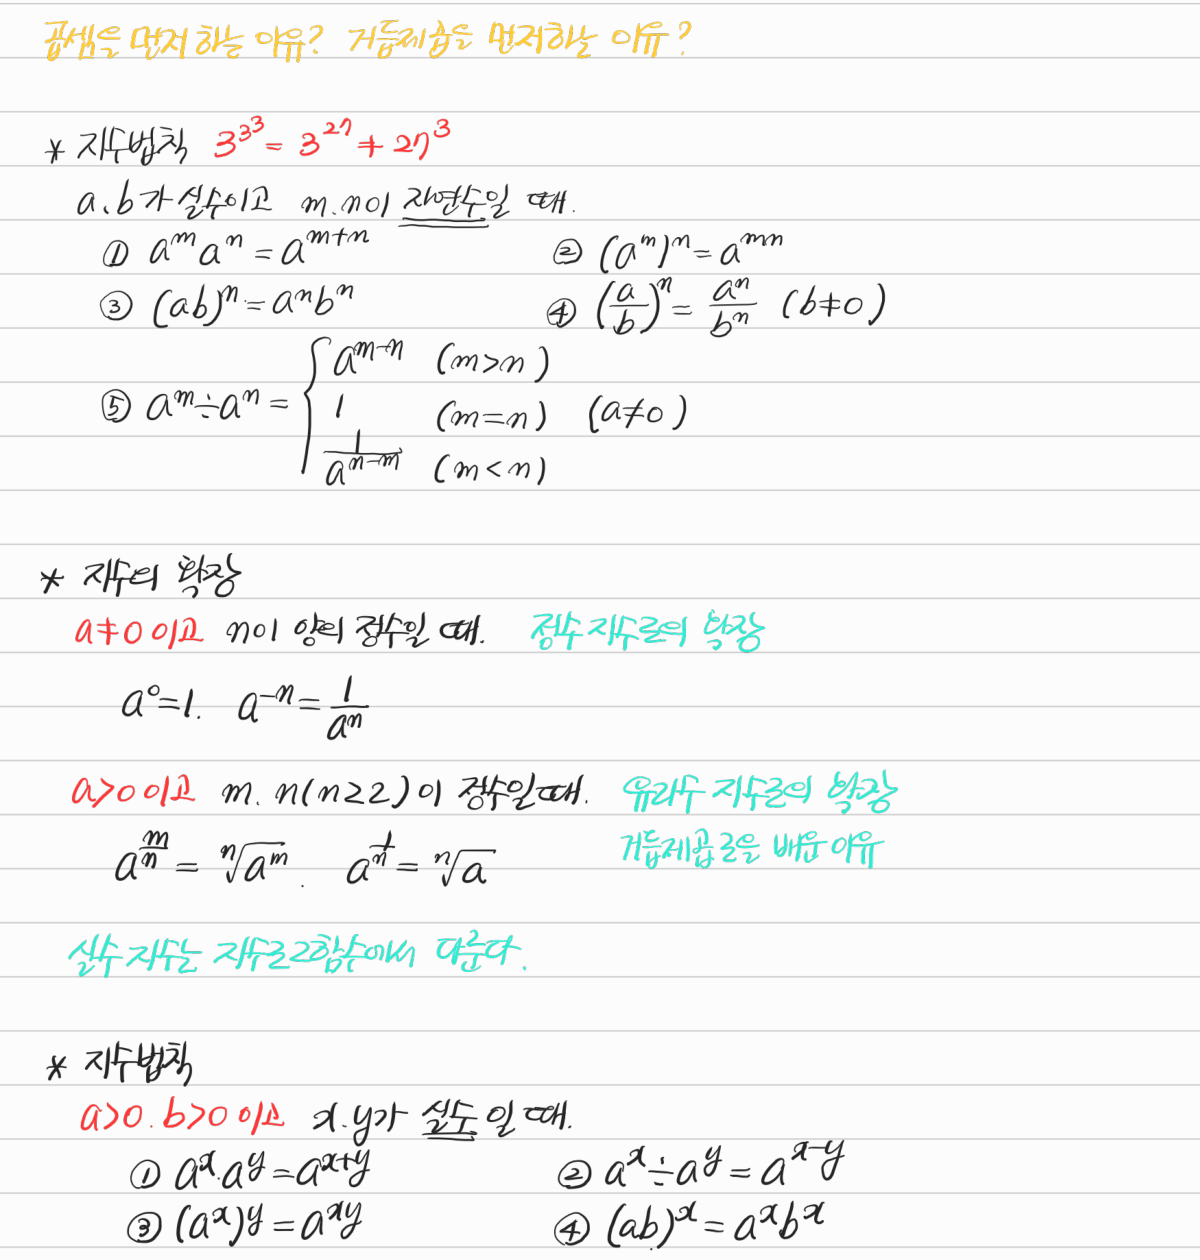 곱셈을 먼저 하는 이유? 거듭제곱을 먼저하는 이유?
* 지수법칙 3^3^3 = 3^27 ≠ 27^3
a, b가 실수이고 m, n이 자연수일 때.
① a^m a^n = a^(m+n) ② (a^m)^n = a^(mn)
③ (ab)^n = a^n b^n ④ (a/b)^n = a^n/b^n (b≠0)
⑤ a^m ÷ a^n = { a^(m-n) (m>n)
1 (m=n) (a≠0)
1/a^(n-m) (m<n)
* 지수의 확장
a≠0 이고 n이 양의 정수일 때. 정수 지수로의 확장
a^0=1. a^(-n) = 1/a^n
a>0 이고 m, n(n≥2)이 정수일때. 유리수 지수로의 확장
a^(m/n) = ⁿ√a^m. a^(1/n) = ⁿ√a 거듭제곱근을 배운 이유
실수 지수는 지수로그함수에서 다룬다.
* 지수법칙
a>0, b>0 이고 x, y가 실수일 때.
① a^x a^y = a^(x+y) ② a^x ÷ a^y = a^(x-y)
③ (a^x)^y = a^(xy) ④ (ab)^x = a^x b^x